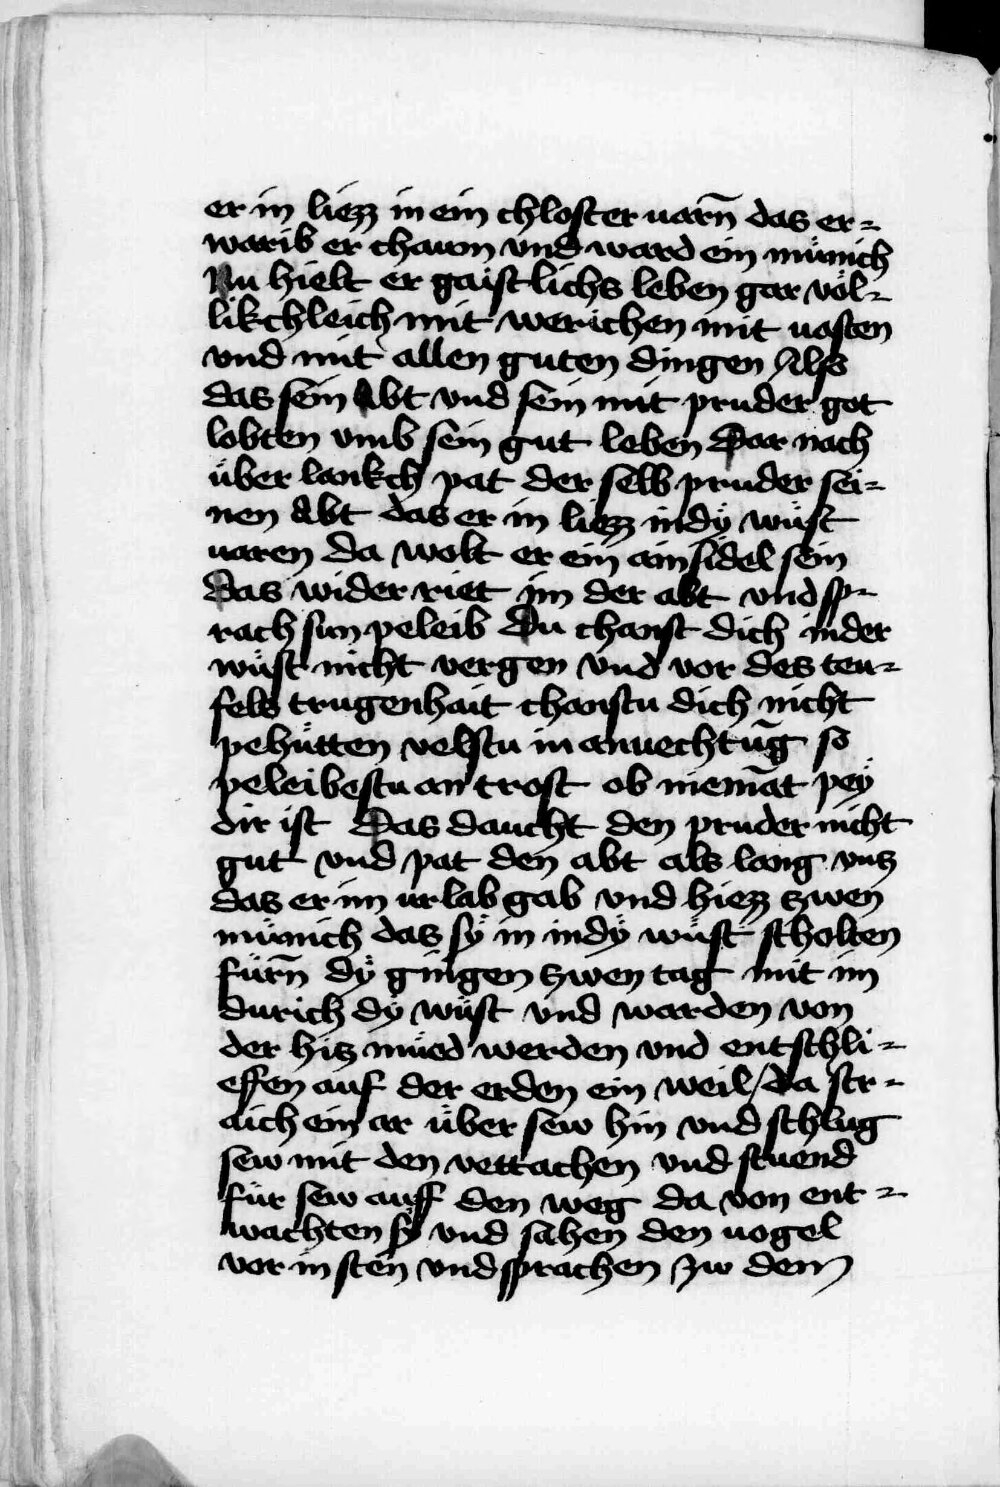 er in liezz in ein chloster uarn̄ das er-
warib er chawm vnd ward ein mu͂nich
Nu hielt er gaistlichs leben gar völ-
likchleich mit werichen mit uasten
vnd mit allen guten dingen Also
das sein Abt vnd sein mit pruder got
lobten vmb sein gut leben Dar nach
über lankch pat der selb pruder sei-
nen Abt das er in liezz in dÿ wüst
uaren da wolt er ein ainsidel sein
Das wider riet im der abt vnd sp-
rach sun peleib Du chanst dich in der
wüst nicht vergen vnd vor des teu-
fels trugenhait chanstu dich nicht
pehütten velstu in anuechtūg so
peleibestu an trost ob niemāt peÿ
dir ist Das daucht den pruder nicht
gut vnd pat den abt als lang vntz
das er im urlab gab vnd hiezz zwen
münich das sÿ in in dÿ wüst scholten
fürn̄ dÿ gingen zwen tag mit im
durich dÿ wüst vnd warden von
der hitz müed werden vnd entschli-
effen auf der erden ein weil / da str-
aich ein ar über sew hin vnd schlug
sew mit den vettachen vnd stuend
für sew auff den weg da von ent-
wachten sÿ vnd sahen den uogel
vor in sten vnd sprachen zw dem